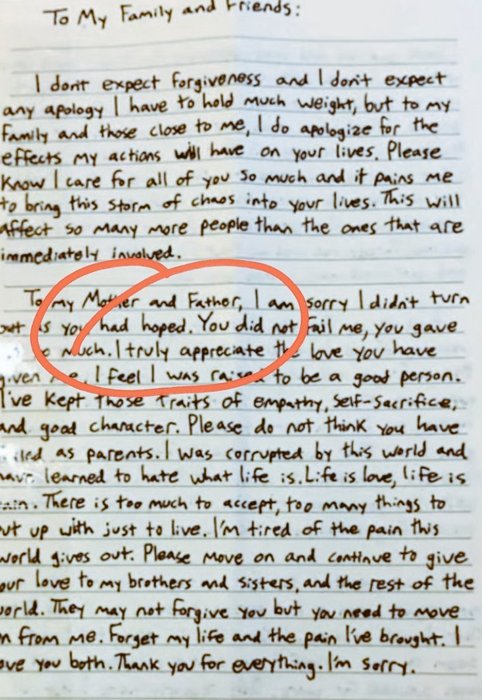 To My Family and Friends:
I dont expect forgiveness and I don't expect
any apology I have to hold much weight, but to my
family and those close to me, I do apologize for the
effects my actions will have on your lives. Please
know I care for all of you so much and it pains me
to bring this storm of chaos into your lives. This will
affect so many more people than the ones that are
immediately involved.
To my Mother and Father, I am sorry I didn't turn
as you had hoped. You did not fail me, you gave
much. I truly appreciate the love you have
given me. I feel I was raised to be a good person.
I've kept those traits of empathy, self-sacrifice,
and good character. Please do not think you have
as parents. I was corrupted by this world and
have learned to hate what life is. Life is love, life is
There is too much to accept, too many things to
up with just to live. I'm tired of the pain this
world gives out. Please move on and continue to give
your love to my brothers and sisters, and the rest of the
world. They may not forgive you but you need to move
from me. Forget my life and the pain I've brought. I
love you both. Thank you for everything. I'm sorry.